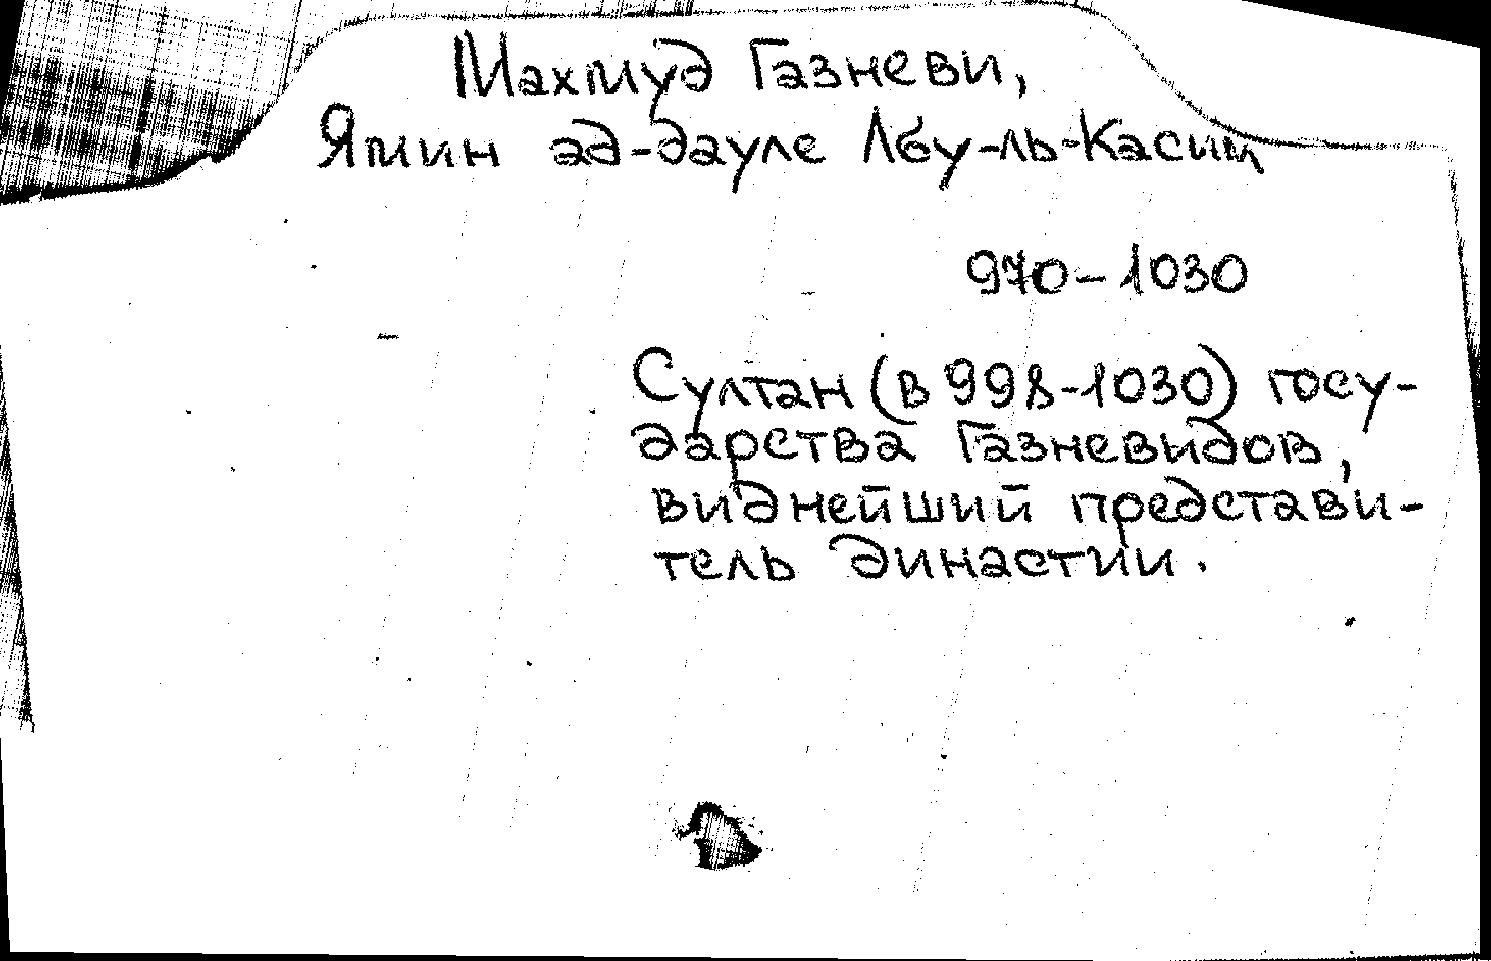 Махмуд Газневи,
Ямин ад-дауле Абу-ль-Касим
970-1030
Султан (в 998-1030) госу-
дарства Газневидов,
виднейший представи-
тель династии.